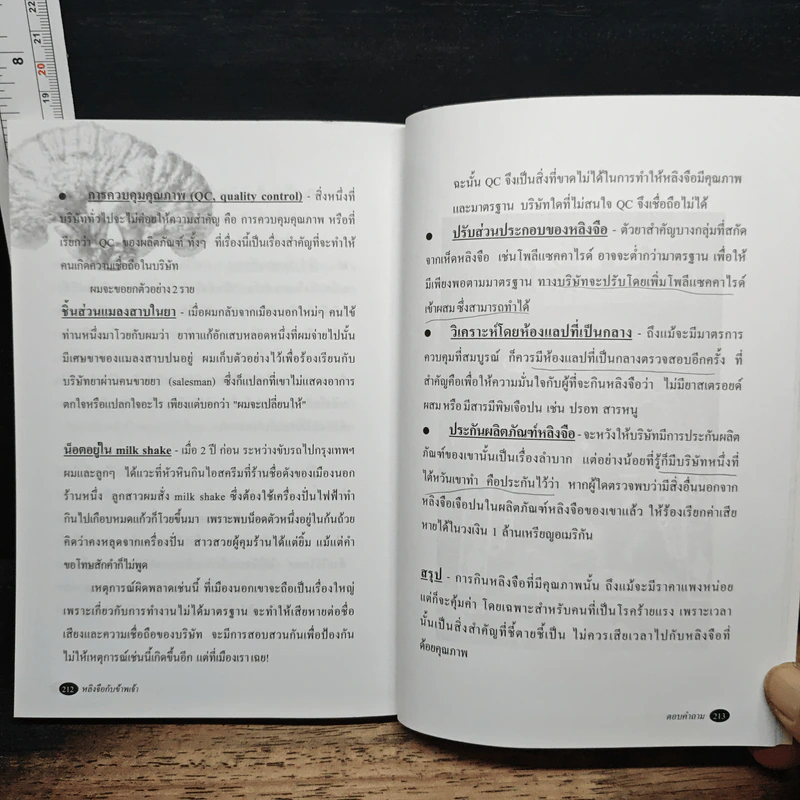 8
20
19
● การควบคุมคุณภาพ (QC, quality control) - สิ่งหนึ่งที่
บริษัททั่วไปจะไม่ค่อยให้ความสำคัญ คือ การควบคุมคุณภาพ หรือที่
เรียกว่า QC ของผลิตภัณฑ์ ทั้งๆ ที่เรื่องนี้เป็นเรื่องสำคัญที่จะทำให้
คนเกิดความเชื่อถือในบริษัท
ผมจะขอยกตัวอย่าง 2 ราย
ชิ้นส่วนแมลงสาบในยา - เมื่อผมกลับจากเมืองนอกใหม่ๆ คนไข้
ท่านหนึ่งมาโวยกับผมว่า ยาทาแก้อักเสบหลอดหนึ่งที่ผมจ่ายไปนั้น
มีเศษขาของแมลงสาบปนอยู่ ผมเก็บตัวอย่างไว้เพื่อร้องเรียนกับ
บริษัทยาผ่านคนขายยา (salesman) ซึ่งก็แปลกที่เขาไม่แสดงอาการ
ตกใจหรือแปลกใจอะไร เพียงแต่บอกว่า "ผมจะเปลี่ยนให้"
น็อตอยู่ใน milk shake - เมื่อ 2 ปี ก่อน ระหว่างขับรถไปกรุงเทพฯ
ผมและลูกๆ ได้แวะที่หัวหินกินไอสครีมที่ร้านชื่อดังของเมืองนอก
ร้านหนึ่ง ลูกสาวผมสั่ง milk shake ซึ่งต้องใช้เครื่องปั่นไฟฟ้าทำ
กินไปเกือบหมดแก้วก็โวยขึ้นมา เพราะพบน็อตตัวหนึ่งอยู่ในก้นถ้วย
คิดว่าคงหลุดจากเครื่องปั่น สาวสวยผู้คุมร้านได้แต่ยิ้ม แม้แต่คำ
ขอโทษสักคำก็ไม่พูด
เหตุการณ์ผิดพลาดเช่นนี้ ที่เมืองนอกเขาจะถือเป็นเรื่องใหญ่
เพราะเกี่ยวกับการทำงานไม่ได้มาตรฐาน จะทำให้เสียหายต่อชื่อ
เสียงและความเชื่อถือของบริษัท จะมีการสอบสวนกันเพื่อป้องกัน
ไม่ให้เหตุการณ์เช่นนี้เกิดขึ้นอีก แต่ที่เมืองเราเฉย!
212 หลิงจือกับข้าพเจ้า
ฉะนั้น QC จึงเป็นสิ่งที่ขาดไม่ได้ในการทำให้หลิงจือมีคุณภาพ
และมาตรฐาน บริษัทใดที่ไม่สนใจ QC จึงเชื่อถือไม่ได้
● ปรับส่วนประกอบของหลิงจือ - ตัวยาสำคัญบางกลุ่มที่สกัด
จากเห็ดหลิงจือ เช่นโพลีแซคคาไรด์ อาจจะต่ำกว่ามาตรฐาน เพื่อให้
มีเพียงพอตามมาตรฐาน ทางบริษัทจะปรับโดยเพิ่มโพลีแซคคาไรด์
เข้าผสม ซึ่งสามารถทำได้
● วิเคราะห์โดยห้องแลปที่เป็นกลาง - ถึงแม้จะมีมาตรการ
ควบคุมที่สมบูรณ์ ก็ควรมีห้องแลปที่เป็นกลางตรวจสอบอีกครั้ง ที่
สำคัญคือเพื่อให้ความมั่นใจกับผู้ที่จะกินหลิงจือว่า ไม่มียาสเตรอยด์
ผสม หรือ มีสารมีพิษเจือปน เช่น ปรอท สารหนู
● ประกันผลิตภัณฑ์หลิงจือ - จะหวังให้บริษัทมีการประกันผลิต
ภัณฑ์ของเขานั้นเป็นเรื่องลำบาก แต่อย่างน้อยที่รู้ก็มีบริษัทหนึ่งที่
ได้หวันเขาทำ คือประกันไว้ว่า หากผู้ใดตรวจพบว่ามีสิ่งอื่นนอกจาก
หลิงจือเจือปนในผลิตภัณฑ์หลิงจือของเขาแล้ว ให้ร้องเรียกค่าเสีย
หายได้ในวงเงิน 1 ล้านเหรียญอเมริกัน
สรุป - การกินหลิงจือที่มีคุณภาพนั้น ถึงแม้จะมีราคาแพงหน่อย
แต่ก็จะคุ้มค่า โดยเฉพาะสำหรับคนที่เป็นโรคร้ายแรง เพราะเวลา
นั้นเป็นสิ่งสำคัญที่ชี้ตายชี้เป็น ไม่ควรเสียเวลาไปกับหลิงจือที่
ด้อยคุณภาพ
ตอบคำถาม 213